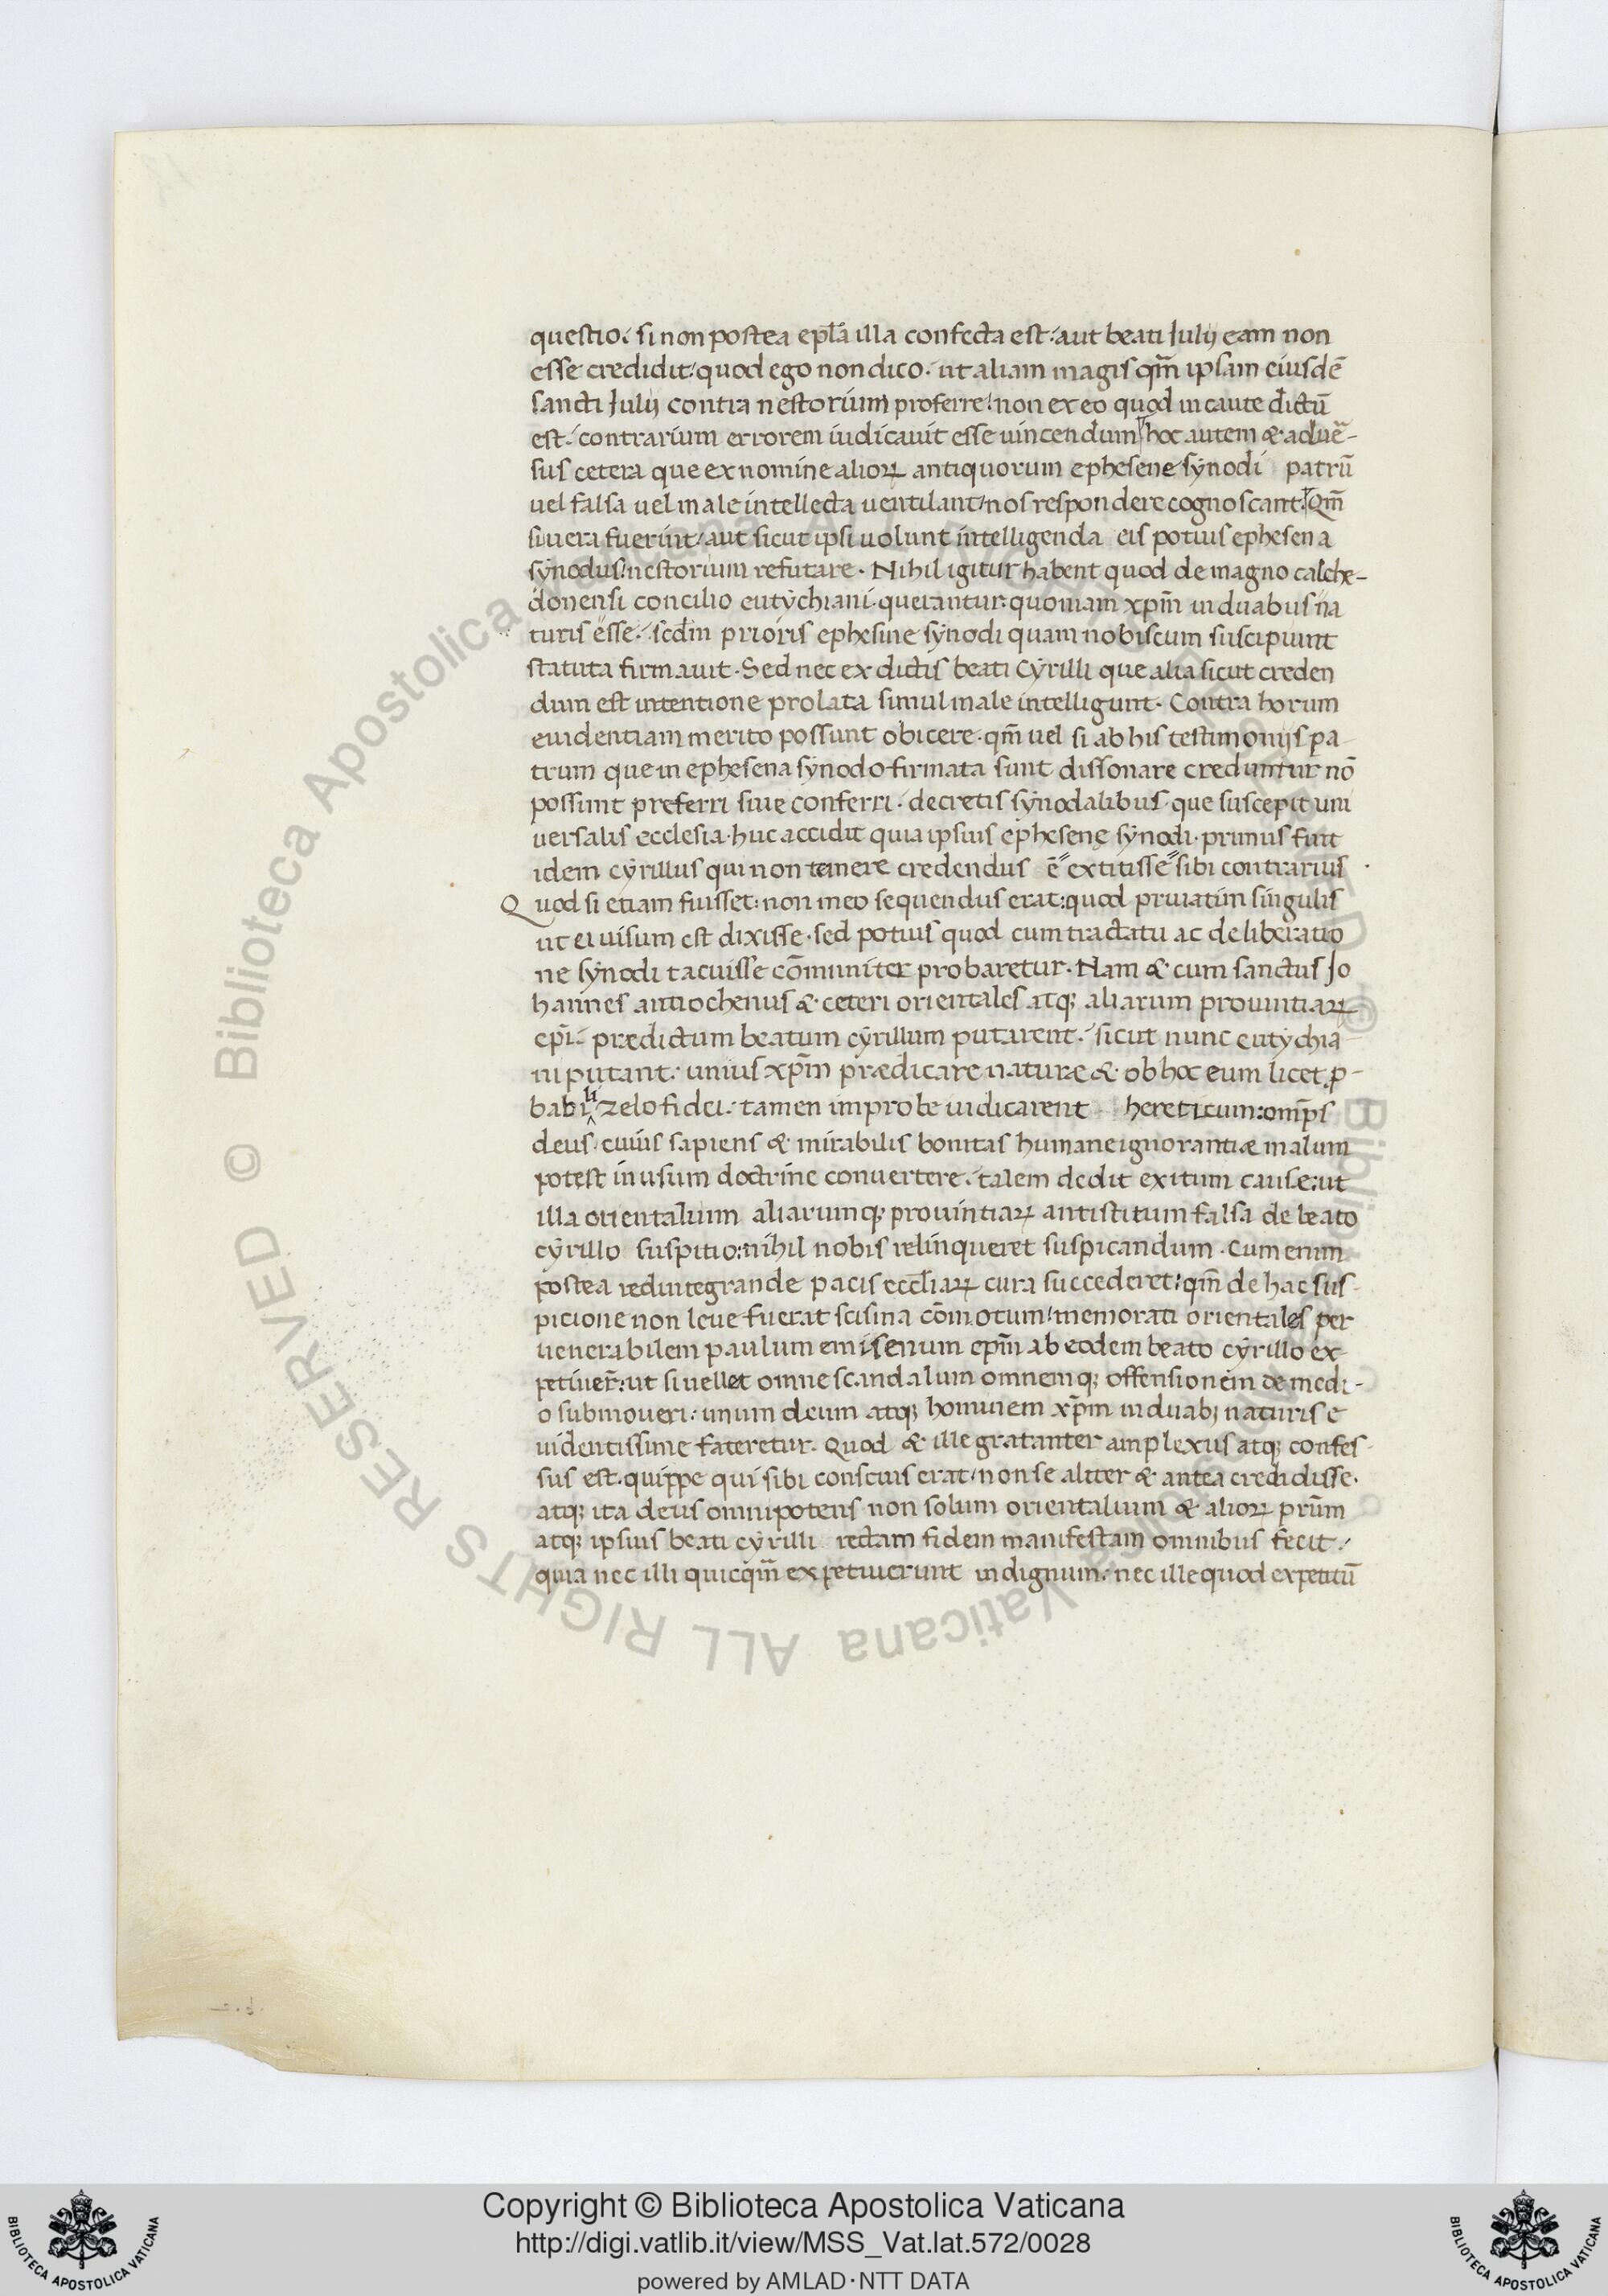 questio. si non postea epl̄a illa confecta est. aut beati Iulij eam non
esse credidit. quod ego non dico. ut aliam magis qm̄ ipsam eiusdē
sancti Iulij contra nestorium proferre. non ex eo quod incaute dictū
est. contrarium errorem iudicauit esse uincendum hoc autem & aduer̄-
sus cetera que ex nomine alioꝝ antiquorum ephesene synodi patrū
uel falsa uel male intellecta uentilant. nos respondere cognoscant. Qm̄
si uera fuerint. aut sicut ipsi uolunt intelligenda eis potius ephesena
synodus. nestorium refutare. Nihil igitur habent quod de magno calche-
donensi concilio eutychiani. querantur. quoniam xp̄m in duabus na
turis esse. scd̄m prioris ephesine synodi quam nobiscum suscipiunt
statuta firmauit. Sed nec ex dictis beati Cyrilli que alia sicut creden
dum est intentione prolata simul male intelligunt. Contra horum
euidentiam merito possunt obicere. qm̄ uel si ab his testimonijs pa
trum que in ephesena synodo firmata sunt dissonare creduntur nō
possunt preferri siue conferri. decretis synodalibus. que suscepit uni
uersalis ecclesia. huc accidit quia ipsius ephesenę synodi. primus fuit
idem cyrillus qui non temere credendus ē" extitisse" sibi contrarius
Quod si etiam fuisset: non meo sequendus erat: quod priuatim singulis
ut ei uisum est dixisse. sed potius quod cum tractatu ac deliberatio
ne synodi tacuisse cōmuniter probaretur. Nam & cum sanctus Jo
hannes antiochenus & ceteri orientales atqꝫ aliarum prouintiaꝝ
ep̄i. prædictum beatum cyrillum putarent. sicut nunc eutychia
ni putant. unius xp̄m prædicare naturæ & ob hoc eum licet ꝓ-
babili zelo fidei. tamen improbe iudicarent hereticum: omp̄s
deus. cuius sapiens & mirabilis bonitas humane ignorantiæ malum
potest in usum doctrine conuertere. talem dedit exitum cause: ut
illa orientalium aliarumqꝫ prouintiaꝝ antistitum falsa de beato
cyrillo suspitio: nihil nobis relinqueret suspicandum. Cum enim
postea redintegrande pacis eccl̄iaꝝ cura succederet: qm̄ de hac sus-
picione non leue fuerat scisma cōmotum. memorati orientales per
uenerabilem paulum emisenum ep̄m ab eodem beato cyrillo ex-
petiuer̄: ut si uellet omne scandalum omnemqꝫ offensionem de medi-
o submoueri: unum deum atqꝫ hominem xp̄m in duabꝫ naturis e
uidentissime fateretur. Quod & ille gratanter amplexus atqꝫ confes
sus est. quippe qui sibi conscius erat. non se aliter & antea credidisse.
atqꝫ ita deus omnipotens non solum orientalium & alioꝝ pr̄um
atqꝫ ipsius beati cyrilli rectam fidem manifestam omnibus fecit.
quia nec illi quicqm̄ expetiuerunt indignum. nec ille quod expetitū
© Biblioteca Apostolica Vaticana ALL RIGHTS RESERVED
Copyright © Biblioteca Apostolica Vaticana
http://digi.vatlib.it/view/MSS_Vat.lat.572/0028
powered by AMLAD·NTT DATA
BIBLIOTECA APOSTOLICA VATICANA
BIBLIOTECA APOSTOLICA VATICANA